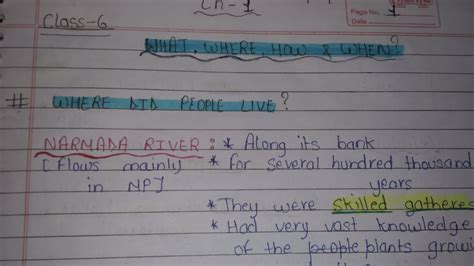 Ch-1
Page No. 1
Date
Class-6
WHAT, WHERE, HOW & WHEN?
# WHERE DID PEOPLE LIVE?
NARMADA RIVER : * Along its bank
[Flows mainly * for several hundred thousand
in MP] years
* They were skilled gatheres
* Had very vast knowledge
of the people plants growi